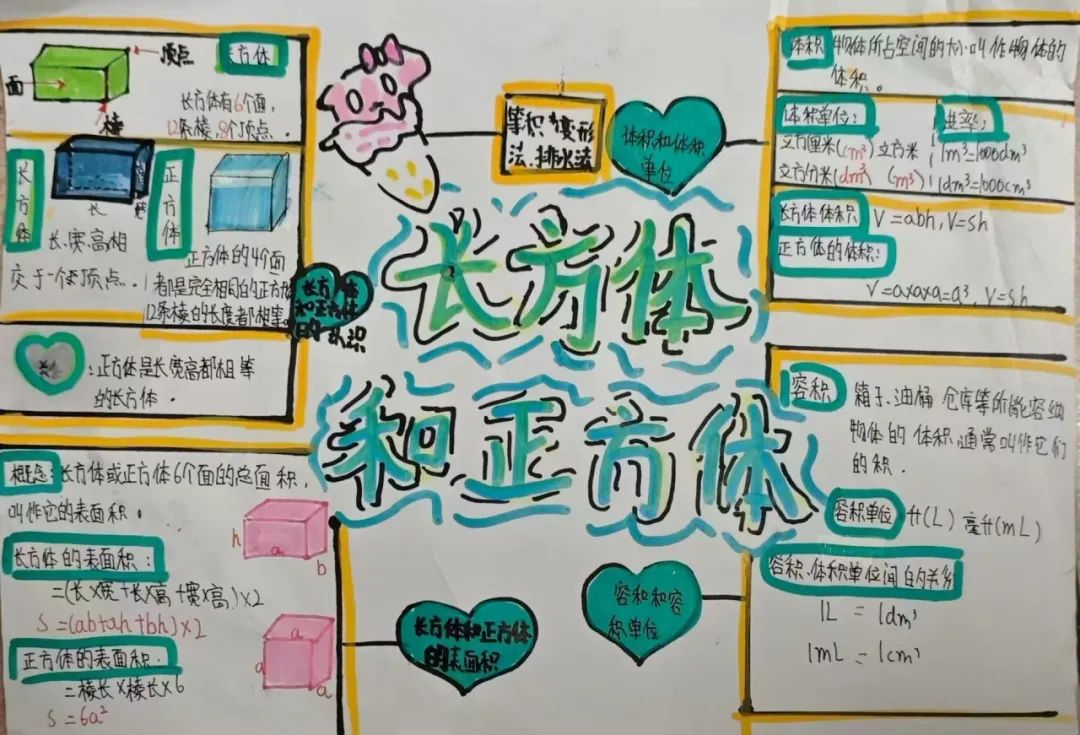 长方体
和正方体
顶点
长方体
面
棱
长方体有6个面，
12条棱，8个顶点．
长方体
长
长、宽、高相
交于一个顶点．
正方体
正方体的个面
都是完全相同的正方形
12条棱的长度都相等
：正方体是长宽高都相等
的长方体．
长方体
和正方体
的认识
概念：长方体或正方体6个面的总面积，
叫作它的表面积。
长方体的表面积：
=(长×宽+长×高+宽×高)×2
S=(ab+ah+bh)×2
h
a
b
正方体的表面积．
=棱长×棱长×6
S=6a²
a
a
a
长方体和正方体
的表面积
等积变形
法、排水法
体积和体积
单位
体积 物体所占空间的大小叫作物体的
体积。
体积单位：
立方厘米(cm³) 立方米
立方分米(dm³) (m³)
进率：
1m³=1000dm³
1dm³=1000cm³
长方体体积 V=abh，V=sh
正方体的体积：
V=a×a×a=a³，V=sh
容积 箱子、油桶 仓库等所能容纳
物体的体积，通常叫作它们
的积．
容积单位：升(L) 毫升(mL)
容积、体积单位间的关系
1L = 1dm³
1mL = 1cm³
容和和容
积单位